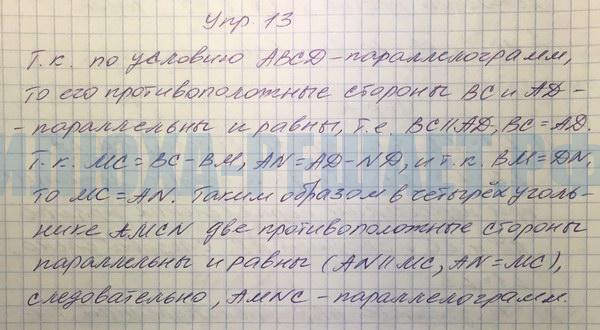 Упр 13
Т.к. по условию ABCD-параллелограмм,
то его противоположные стороны BC и AD-
-параллельны и равны, т.е. BC||AD, BC=AD.
Т.к. MC=BC-BM, AN=AD-ND, и т.к. BM=DN,
то MC=AN. Таким образом в четырёхуголь-
нике AMCN две противоположные стороны
параллельны и равны (AN||MC, AN=MC),
следовательно, AMNC-параллелограмм.